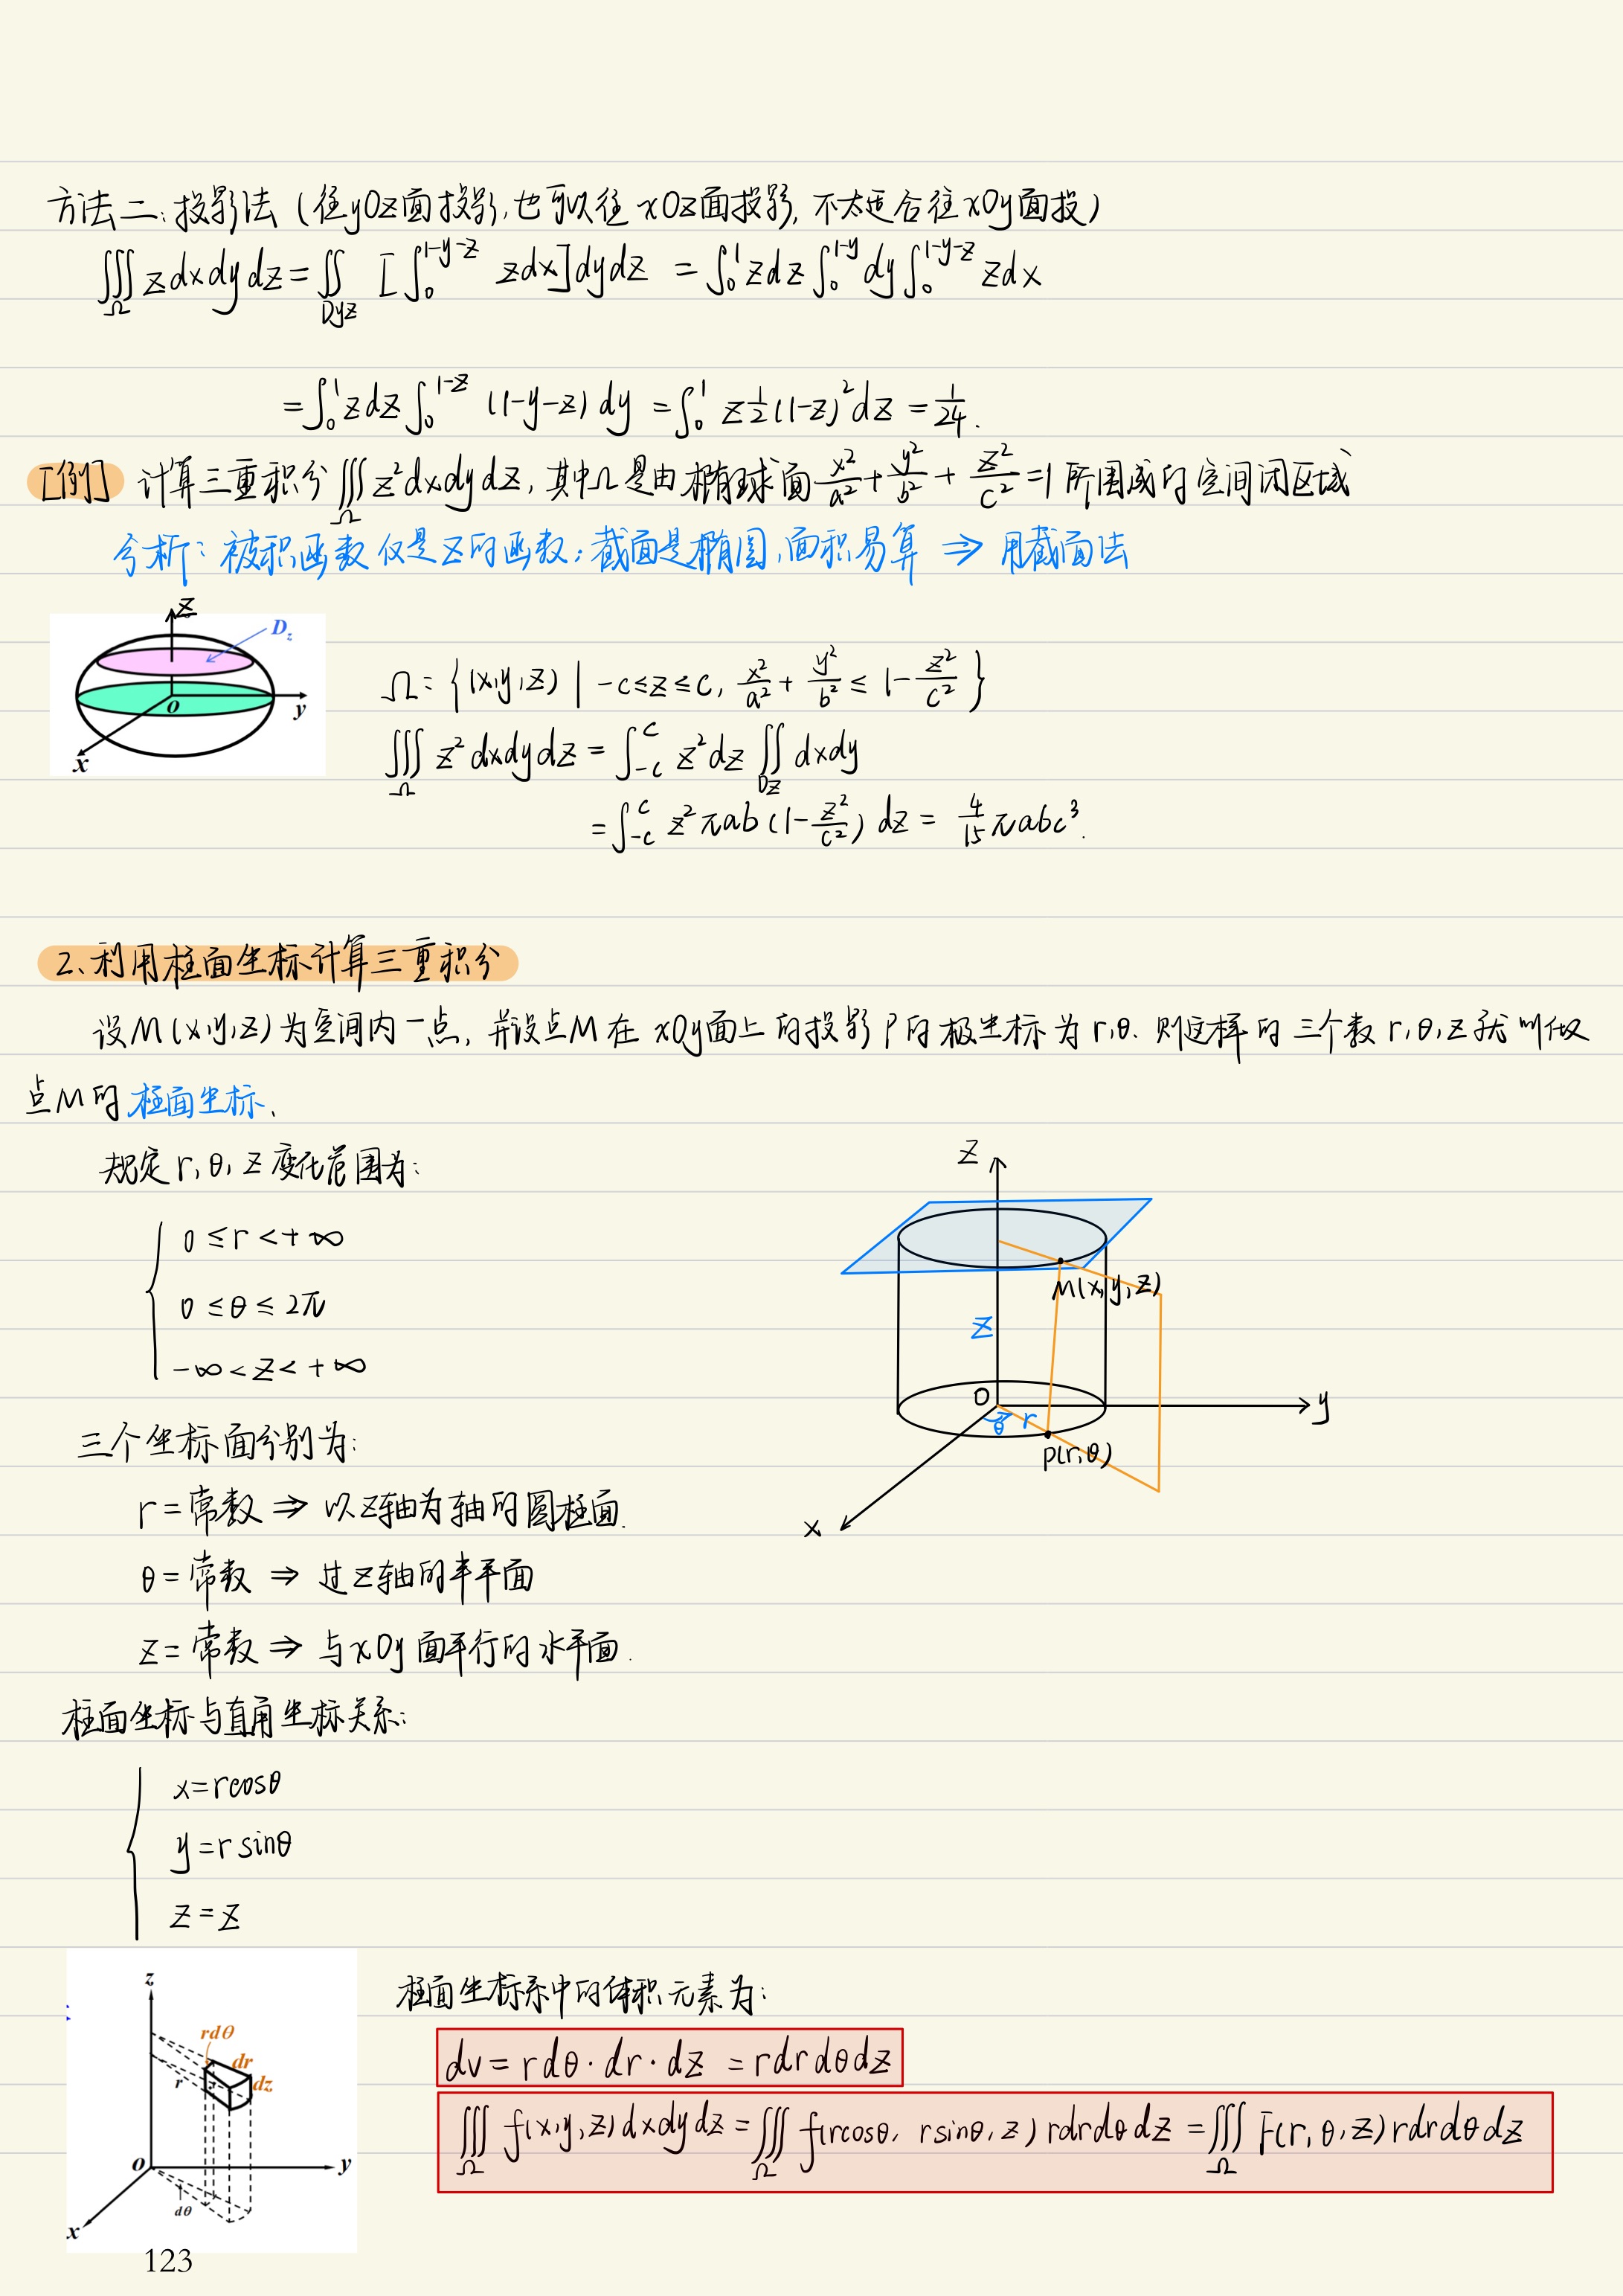 方法二:投影法(往yOz面投影,也可以往xOz面投影,不太适合往xOy面投)
∭_Ω zdxdydz = ∬_Dyz [∫_0^{1-y-z} zdx]dydz = ∫_0^1 zdz∫_0^{1-y} dy∫_0^{1-y-z} zdx
= ∫_0^1 zdz∫_0^{1-z} (1-y-z)dy = ∫_0^1 z½(1-z)²dz = 1/24.
[例] 计算三重积分∭_Ω z²dxdydz,其中Ω是由椭球面x²/a²+y²/b²+z²/c²=1所围成的空间闭区域
分析:被积函数仅是z的函数;截面是椭圆,面积易算 ⇒ 用截面法
z
D_z
o
y
x
Ω: {(x,y,z) | -c≤z≤c, x²/a²+y²/b² ≤ 1-z²/c²}
∭_Ω z²dxdydz = ∫_{-c}^c z²dz∬_Dz dxdy
= ∫_{-c}^c z²πab(1-z²/c²)dz = 4/15 πabc³.
2、利用柱面坐标计算三重积分
设M(x,y,z)为空间内一点,并设点M在xOy面上的投影P的极坐标为r,θ.则这样的三个数r,θ,z就叫做
点M的柱面坐标、
规定r,θ,z变化范围为:
0≤r<+∞
0≤θ≤2π
-∞<z<+∞
z
M(x,y,z)
z
O
y
θ
r
P(r,θ)
x
三个坐标面分别为:
r=常数 ⇒ 以z轴为轴的圆柱面.
θ=常数 ⇒ 过z轴的半平面
z=常数 ⇒ 与xOy面平行的水平面.
柱面坐标与直角坐标关系:
x=rcosθ
y=rsinθ
z=z
z
rdθ
dr
r
dz
o
y
dθ
x
柱面坐标系中的体积元素为:
dv=rdθ·dr·dz=rdrdθdz
∭_Ω f(x,y,z)dxdydz=∭_Ω f(rcosθ, rsinθ,z)rdrdθdz=∭_Ω F(r,θ,z)rdrdθdz
123